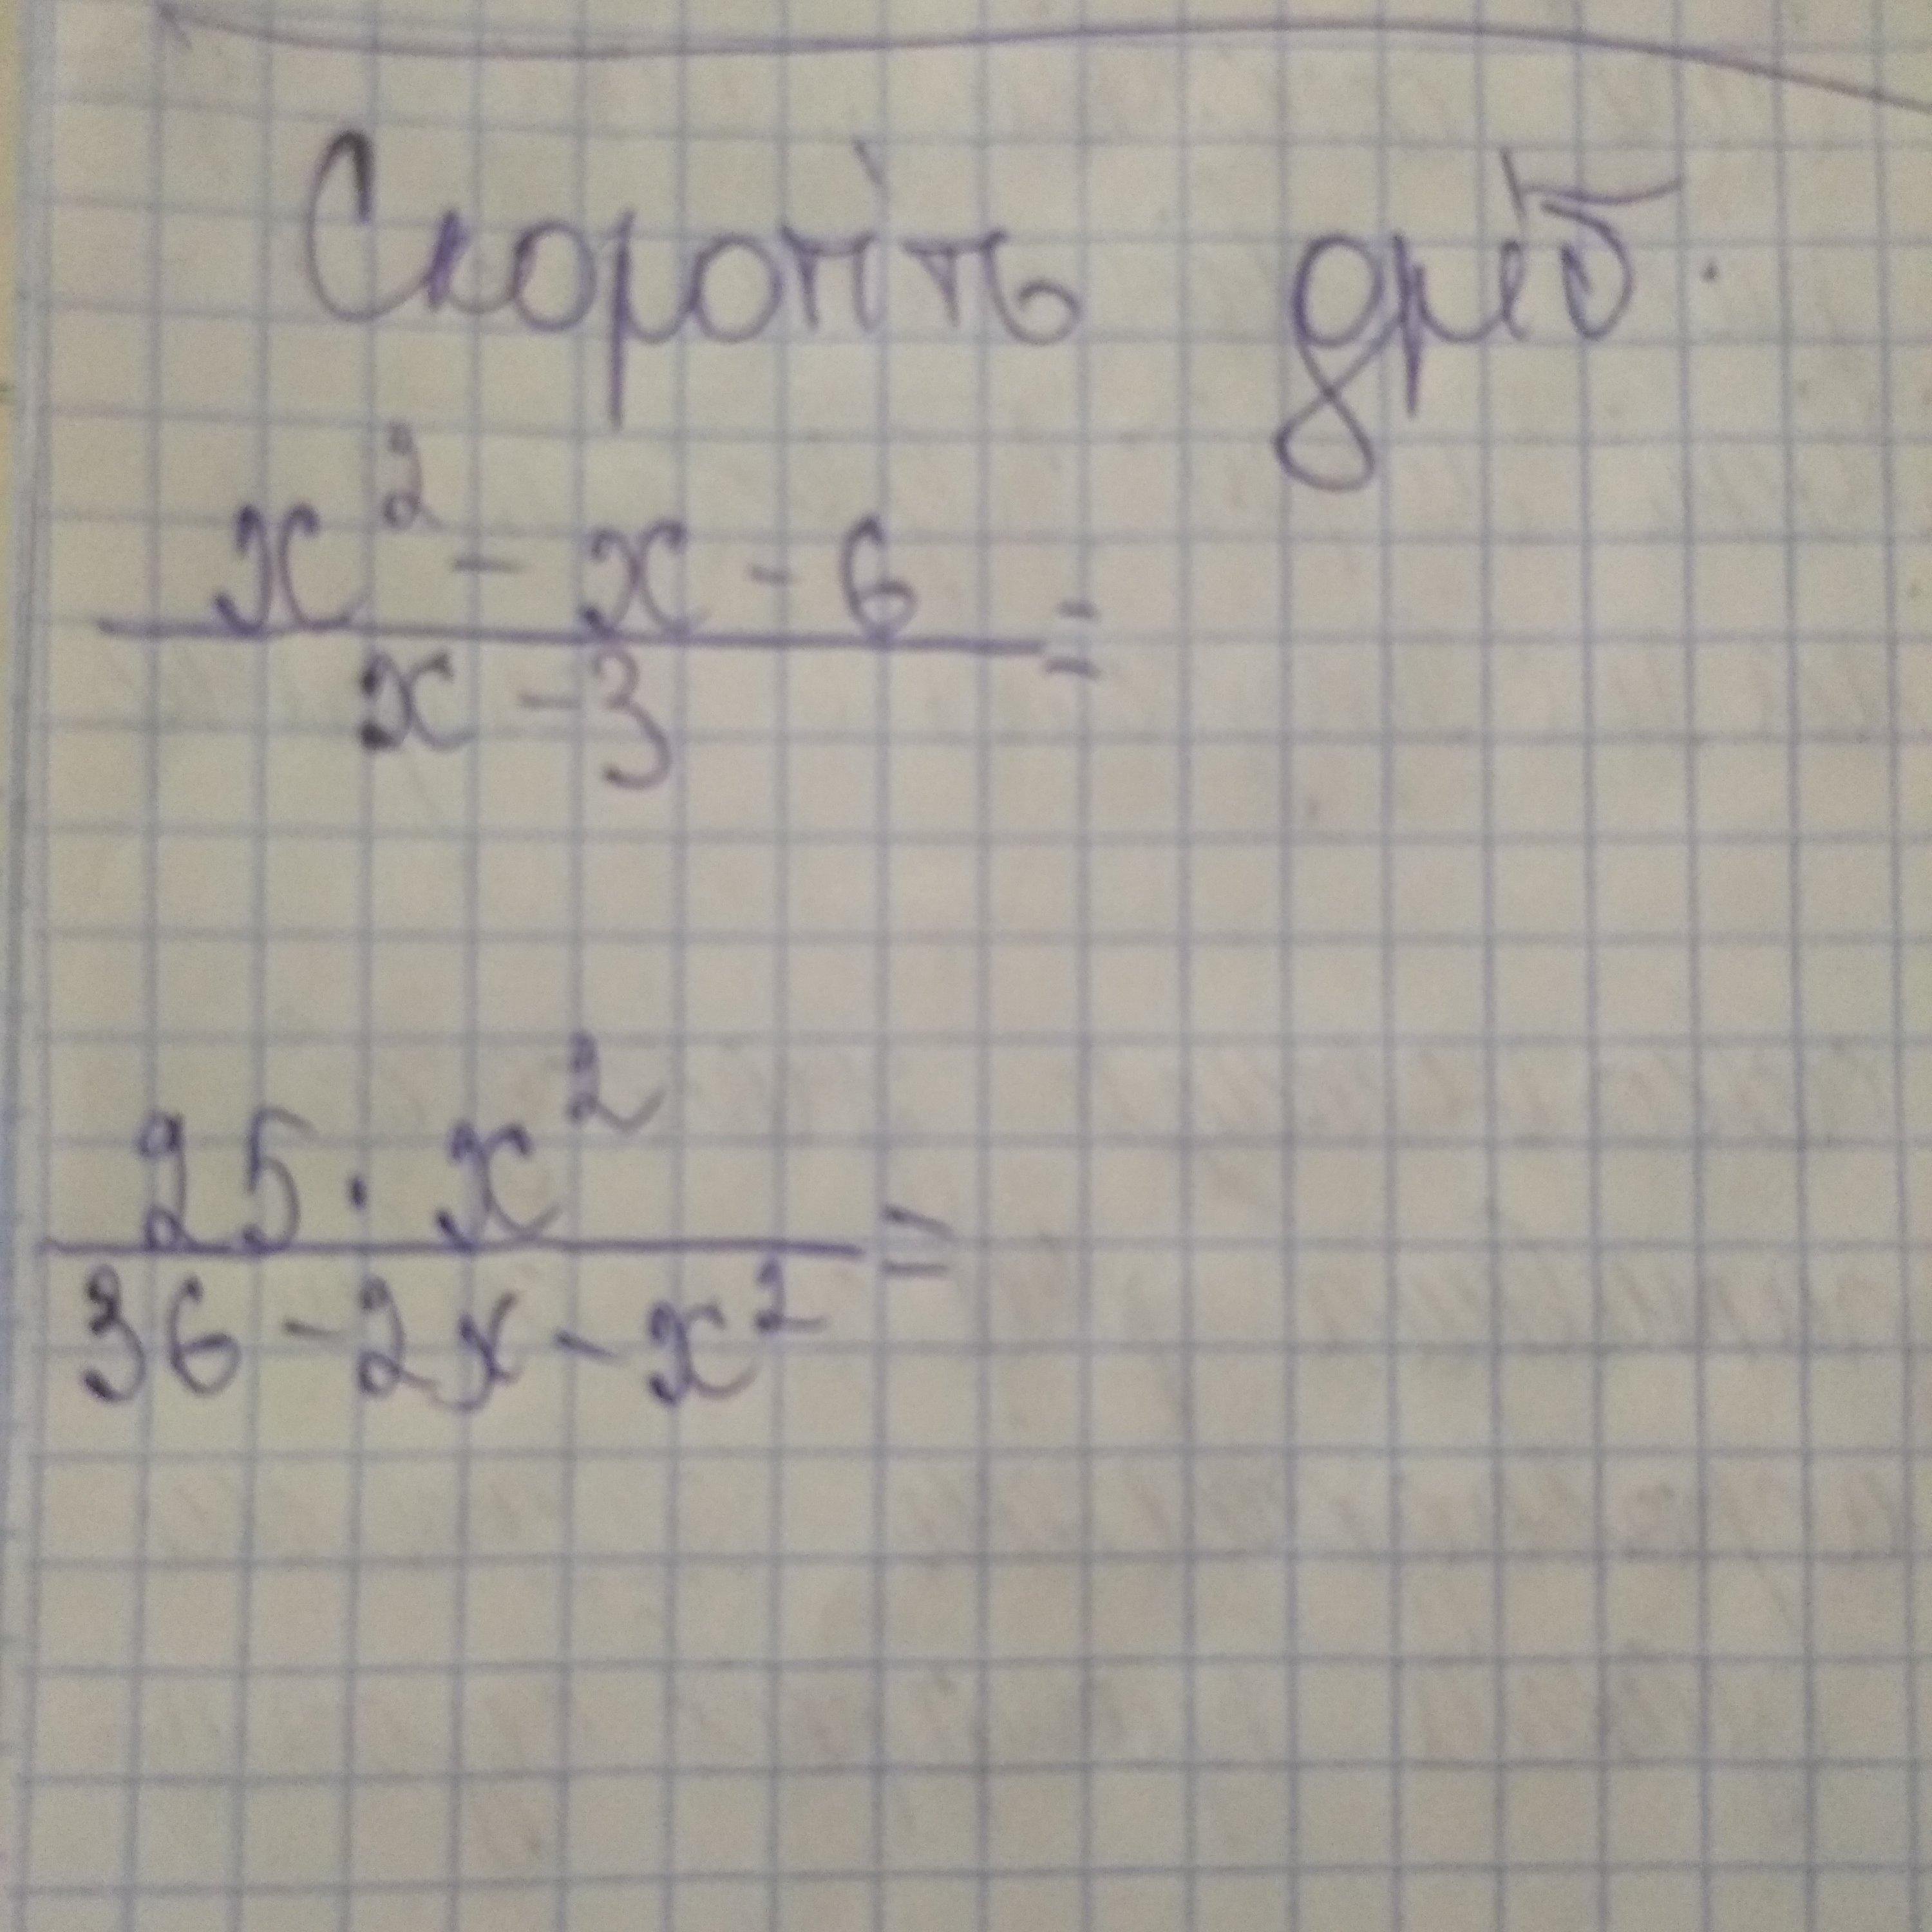 Скоротіть дріб.
x² - x - 6
x - 3 =
25 · x²
36 - 2x - x² =